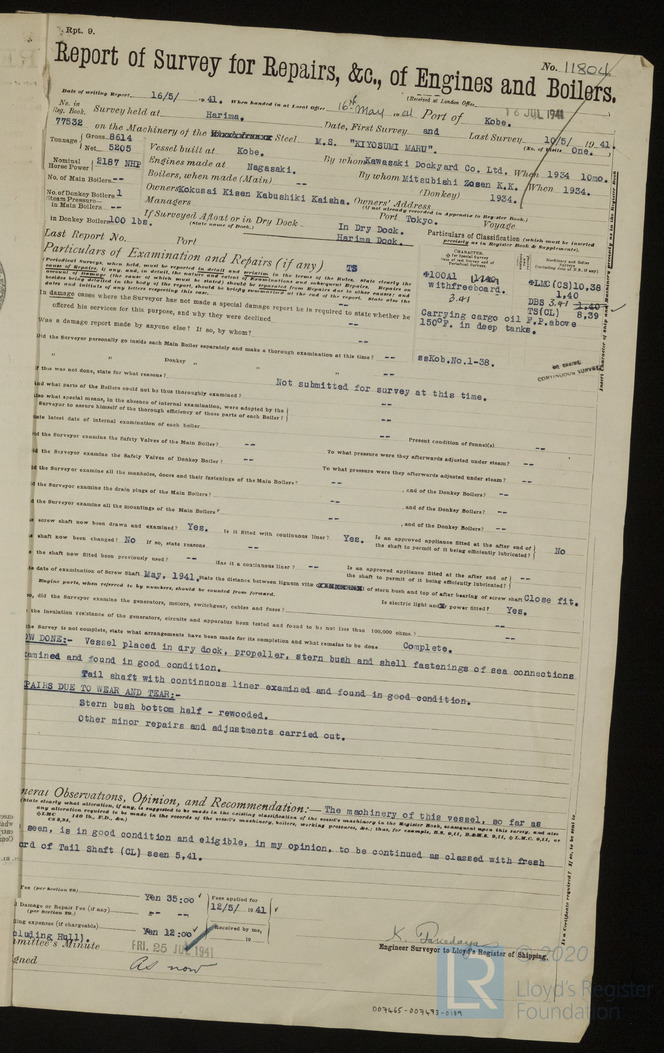 Rpt. 9.
Report of Survey for Repairs, &c., of Engines and Boilers.
No. 11804
(Received at London Office 16 JUL 1941
Date of writing Report 16/5/ 1941. When handed in at Local Office 16th May 1941 Port of Kobe.
No. in Reg. Book. 77532 Survey held at Harima. Date, First Survey and Last Survey 10/5/ 1941.
(No. of Visits One.
on the Machinery of the Steel M.S. "KIYOSUMI MARU".
Tonnage Gross 8614 Net 5205
Vessel built at Kobe. By whom Kawasaki Dockyard Co. Ltd. When 1934 10mo.
Nominal Horse Power 2187 NHP Engines made at Nagasaki. By whom Mitsubishi Zosen K.K. When 1934.
No. of Main Boilers -- Boilers, when made (Main) (Donkey) 1934.
No. of Donkey Boilers 1 Owners Kokusai Kisen Kabushiki Kaisha. Owners' Address
(if not already recorded in Appendix to Register Book.)
Steam Pressure in Main Boilers -- Managers Port Tokyo. Voyage
in Donkey Boilers 100 lbs. If Surveyed Afloat or in Dry Dock In Dry Dock.
(State name of Dock.) Harima Dock.
Last Report No. Port
Particulars of Classification (which must be inserted precisely as in Register Book & Supplements).
Particulars of Examination and Repairs (if any) TS
CHARACTER.
+100A1 1/40
withfreeboard.
3.41
Carrying cargo oil F.P.above
150°F. in deep tanks.
+LMC(CS)10,38
1,40
DBS 3.41 1,40
TS(CL) 8,39
ssKob.No.1-38.
CONTINUOUS SURVEY
In damage cases where the Surveyor has not made a special damage report he is required to state whether he
offered his services for this purpose, and why they were declined --
Was a damage report made by anyone else? If so, by whom? --
Did the Surveyor personally go inside each Main Boiler separately and make a thorough examination at this time? --
" " Donkey " " " --
If this was not done, state for what reasons? Not submitted for survey at this time.
And what parts of the Boilers could not be thus thoroughly examined? --
Also what special means, in the absence of internal examination, were adopted by the
Surveyor to assure himself of the thorough efficiency of those parts of each Boiler? --
ate latest date of internal examination of each boiler -- Present condition of funnel(s) --
id the Surveyor examine the Safety Valves of the Main Boiler? -- To what pressure were they afterwards adjusted under steam? --
id the Surveyor examine the Safety Valves of Donkey Boiler? -- To what pressure were they afterwards adjusted under steam? --
id the Surveyor examine all the manholes, doors and their fastenings of the Main Boilers? -- , and of the Donkey Boilers? --
id the Surveyor examine the drain plugs of the Main Boilers? -- , and of the Donkey Boilers? --
id the Surveyor examine all the mountings of the Main Boilers? -- , and of the Donkey Boilers? --
screw shaft now been drawn and examined? Yes. Is it fitted with continuous liner? Yes. Is an approved appliance fitted at the after end of the shaft to permit of it being efficiently lubricated? No
shaft now been changed? No If so, state reasons --
the shaft now fitted been previously used? -- Has it a continuous liner? -- Is an approved appliance fitted at the after end of the shaft to permit of it being efficiently lubricated? --
date of examination of Screw Shaft May, 1941. State the distance between lignum vitæ of stern bush and top of after bearing of screw shaft Close fit.
Engine parts, when referred to by numbers, should be counted from forward. Is electric light and power fitted? Yes.
so, did the Surveyor examine the generators, motors, switchgear, cables and fuses? --
the insulation resistance of the generators, circuits and apparatus been tested and found to be not less than 100,000 ohms? --
the Survey is not complete, state what arrangements have been made for its completion and what remains to be done Complete.
OW DONE:- Vessel placed in dry dock, propeller, stern bush and shell fastenings of sea connections
amined and found in good condition.
Tail shaft with continuous liner examined and found in good condition.
PAIRS DUE TO WEAR AND TEAR:-
Stern bush bottom half - rewooded.
Other minor repairs and adjustments carried out.
neral Observations, Opinion, and Recommendation:- The machinery of this vessel, so far as
seen, is in good condition and eligible, in my opinion, to be continued as classed with fresh
ord of Tail Shaft (CL) seen 5,41.
Fee (per Section 29) Yen 35:00
Damage or Repair Fee (if any) (per Section 29.) -- --
ling expenses (if chargeable) Yen 12:00
cluding Hull).
Fees applied for 12/5/ 1941
Received by me, 19
mmittee's Minute FRI. 25 JUL 1941
gned As now
Engineer Surveyor to Lloyd's Register of Shipping.
© 2020
LR
Lloyd's Register
Foundation
007465-007473-0189